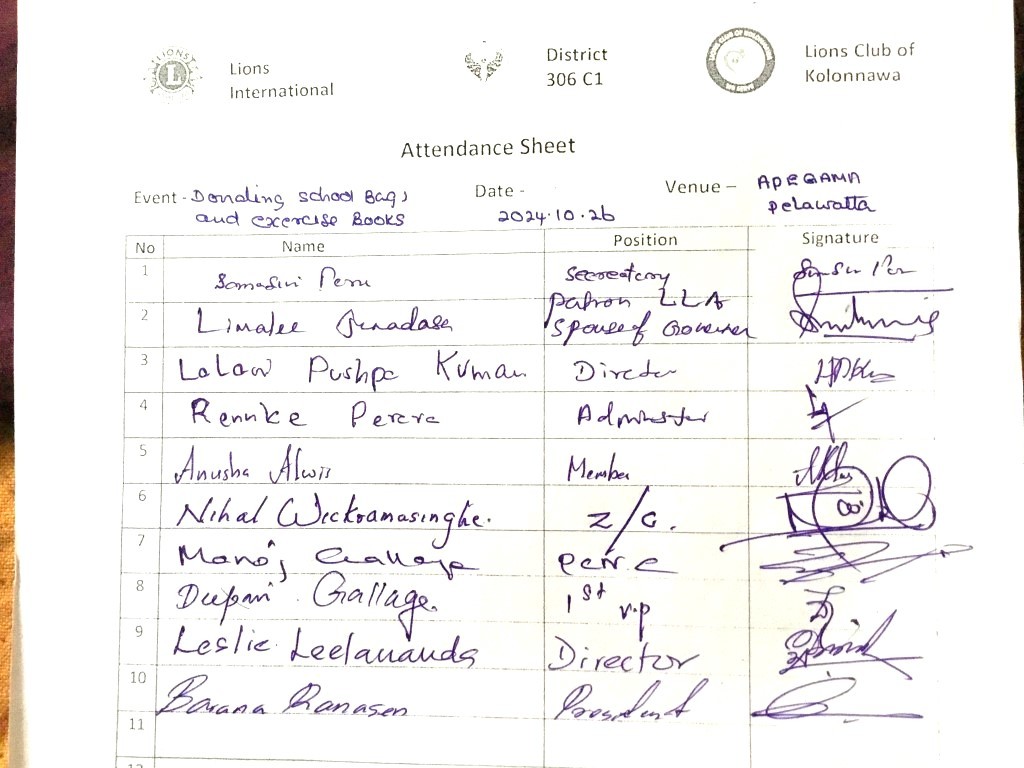 LIONS
L
Lions
International
District
306 C1
Lions Club of
Kolonnawa
Attendance Sheet
Event - Donating school Bags
and exercise Books
Date -
2024.10.26
Venue – APEGAMA
Pelawatta
No Name Position Signature
1 Somasiri Peru Secreatory
2 Limalee Jinadasa Patron LLA
Spouse of Governer
3 Lalani Pushpa Kumari Director
4 Rennike Perera
5 Anusha Alwis Member
6 Nihal Wickramasinghe. Z/C.
7 Manoj Gallage
8 Gallage. 1st v.p
9 Leslie Leelananda Director
10 Barana Ranasen President
11